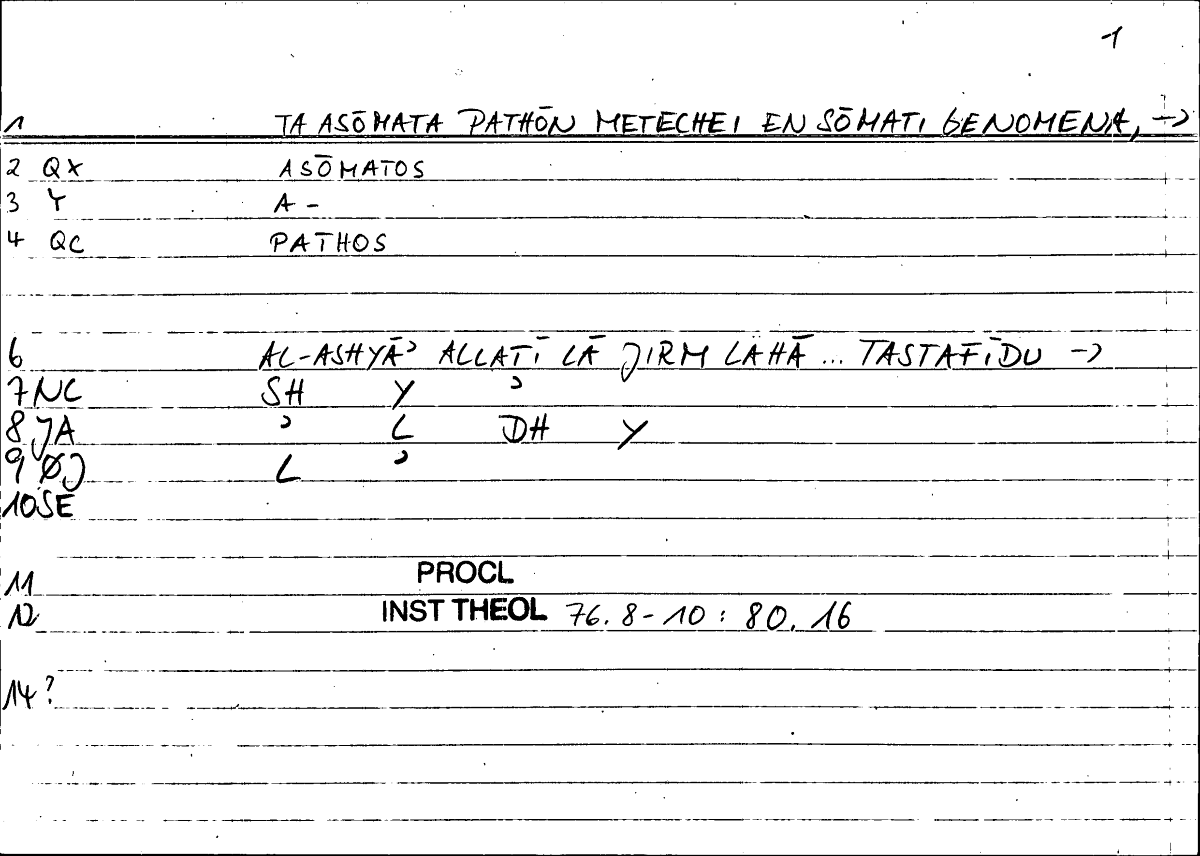 1
1 TA ASŌMATA PATHŌN METECHEI EN SŌMATI GENOMENA, →
2 QX ASŌMATOS
3 Y A -
4 QC PATHOS
6 AL-ASHYĀʾ ALLATĪ LĀ JIRM LAHĀ ... TASTAFĪDU →
7 NC SH Y ʾ
8 JA ʾ L DH Y
9 ØJ L ʾ
10 SE
11 PROCL
12 INST THEOL 76. 8-10 : 80. 16
14 ?